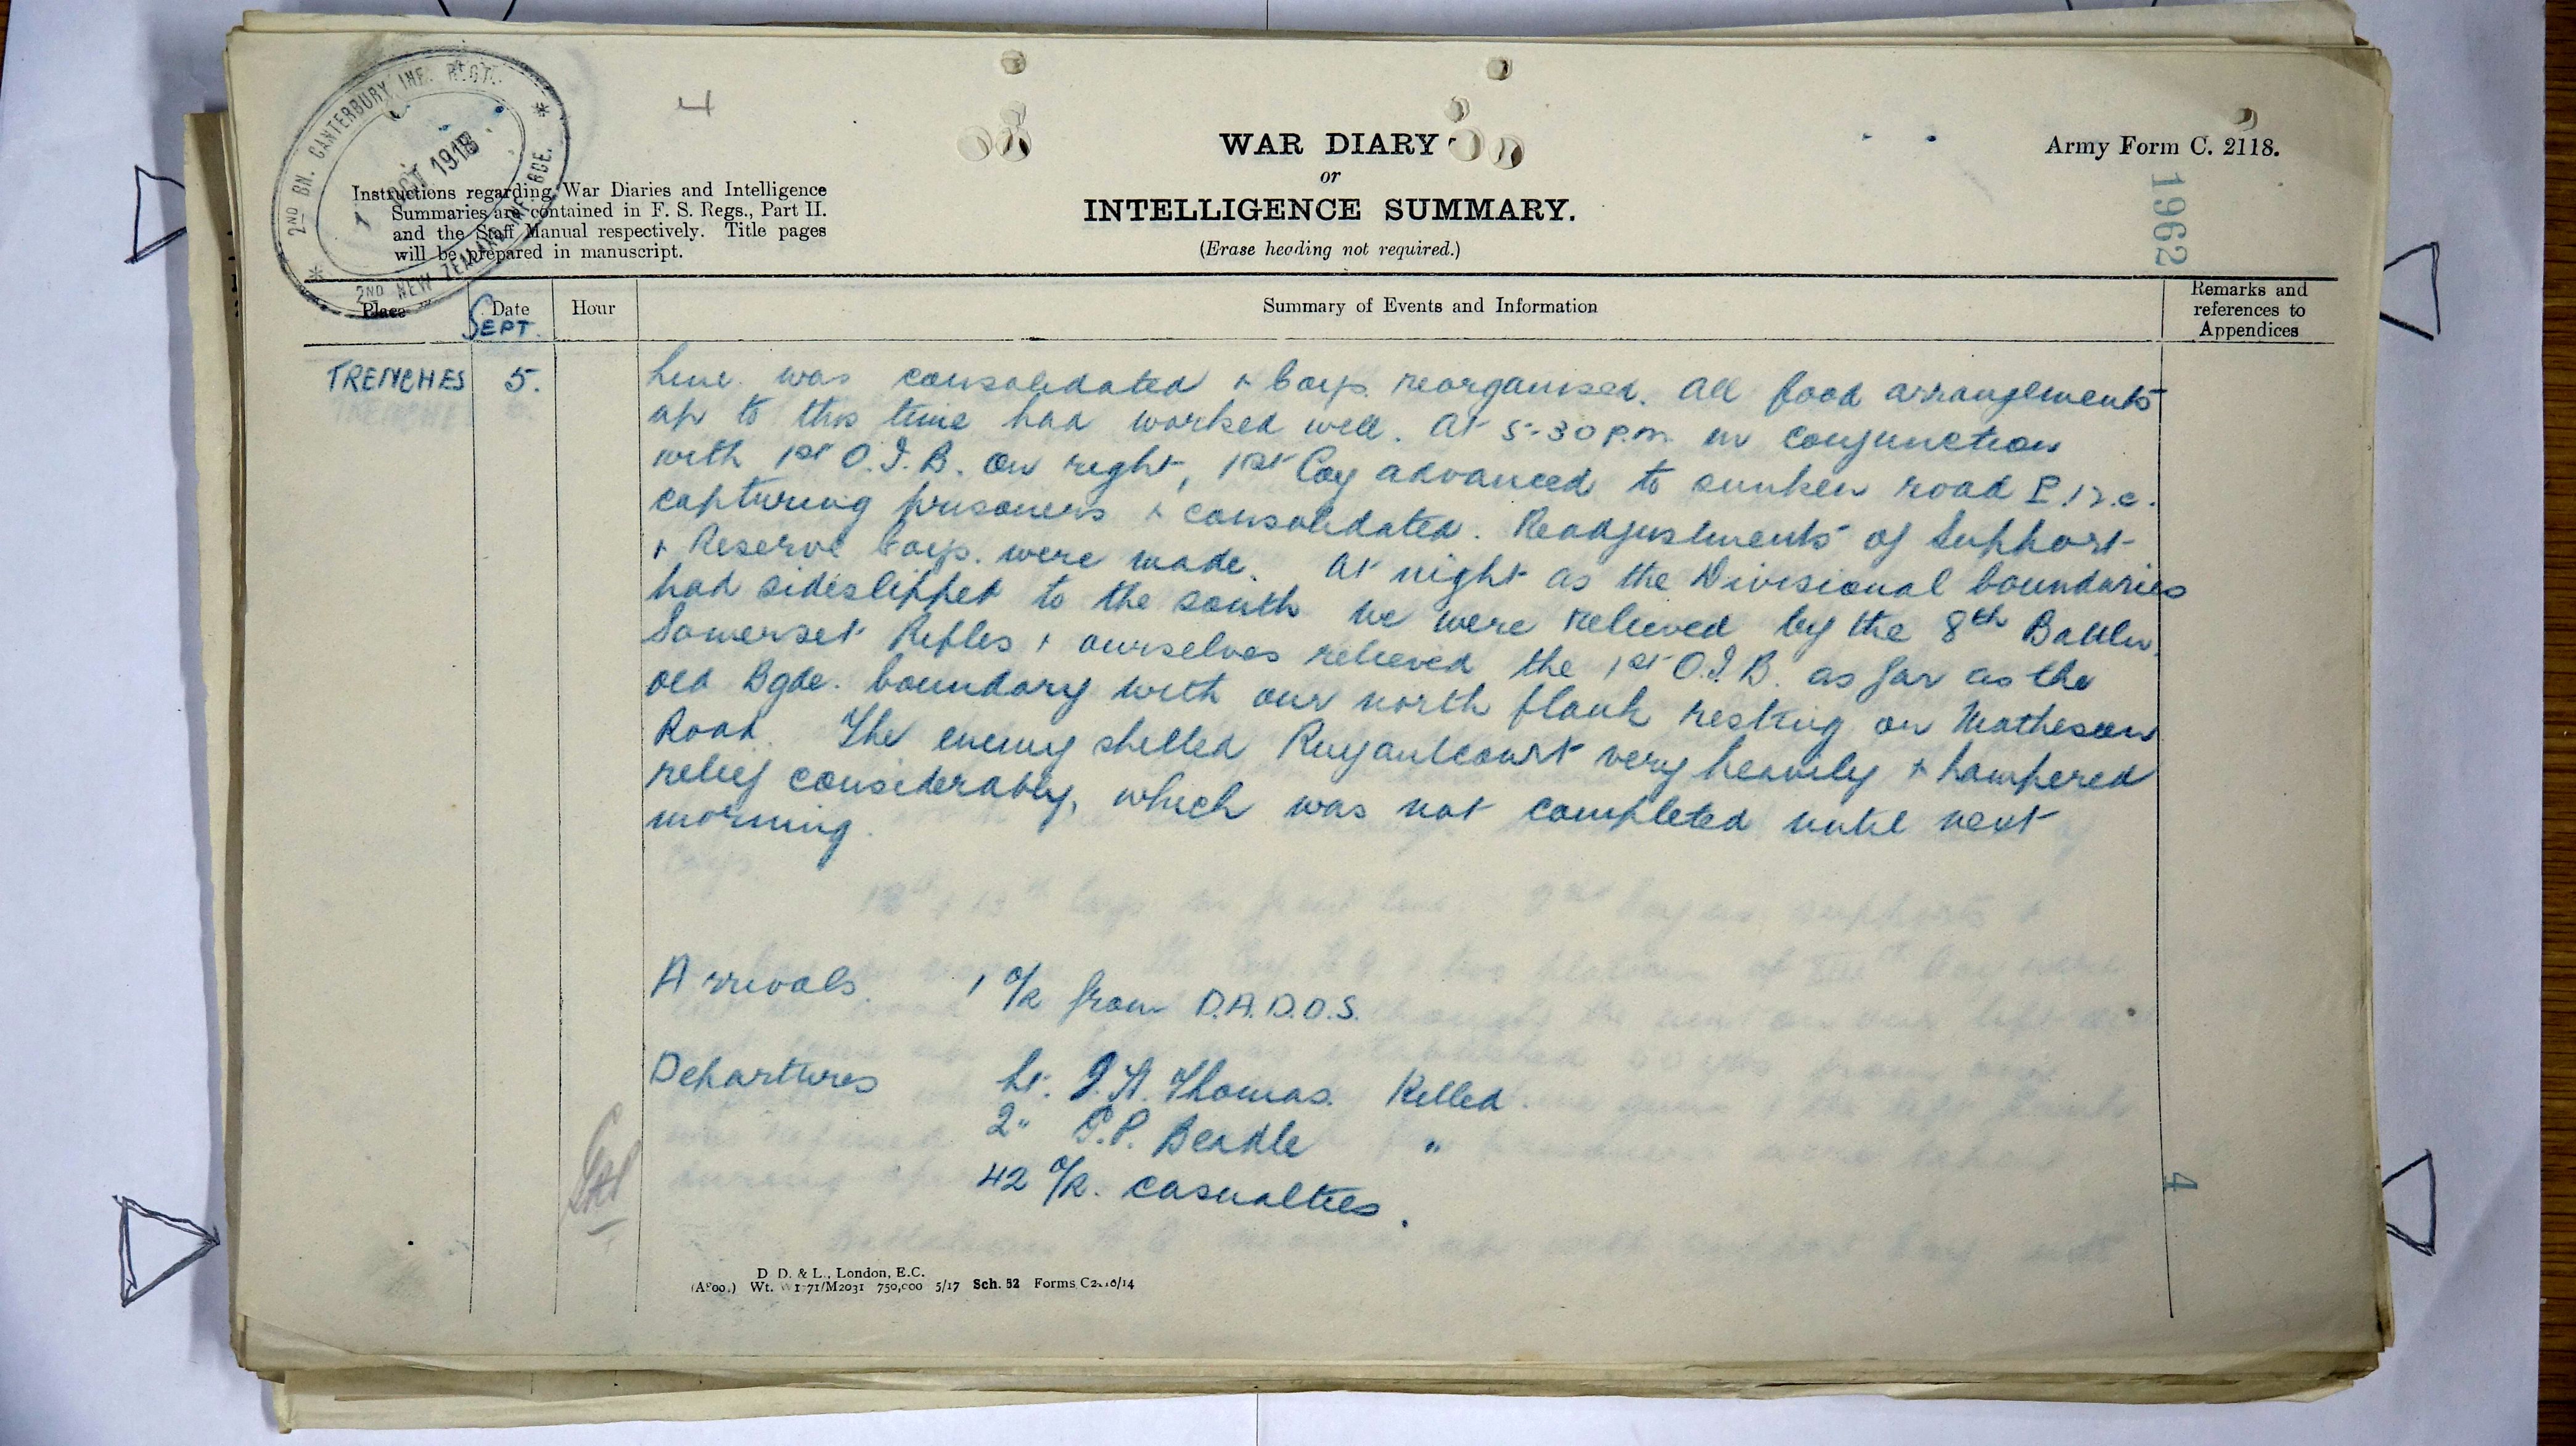 2ND BN. CANTERBURY INF. REGT.
1 OCT 1918
2ND NEW ZEALAND INF. BDE.
4
Instructions regarding War Diaries and Intelligence
Summaries are contained in F. S. Regs., Part II.
and the Staff Manual respectively. Title pages
will be prepared in manuscript.
WAR DIARY
or
INTELLIGENCE SUMMARY.
(Erase heading not required.)
Army Form C. 2118.
1962
Place
Date
SEPT.
Hour
Summary of Events and Information
Remarks and
references to
Appendices
TRENCHES 5.
Line was consolidated + Coys. reorganised. All food arrangements
up to this time had worked well. At 5-30 P.M. in conjunction
with 1st O.I.B. on right, 1st Coy advanced to sunken road
capturing prisoners + consolidated. Readjustments of Support
+ Reserve Coys. were made. At night as the Divisional boundaries
had sideslipped to the south we were relieved by the 8th Battln.
Somerset Rifles + ourselves relieved the 1st O.I.B. as far as the
old Bgde. boundary with our north flank resting on Matheson
Road. The enemy shelled Ruyaulcourt very heavily + hampered
relief considerably, which was not completed until next
morning.
Arrivals. 1 O/R from D.A.D.O.S.
Departures Lt. J.A. Thomas. Killed.
2" Beadle "
42 O/R. casualties.
4
D. D. & L., London, E.C.
Wt. 71/M2031 750,000 5/17 Sch. 52 Forms